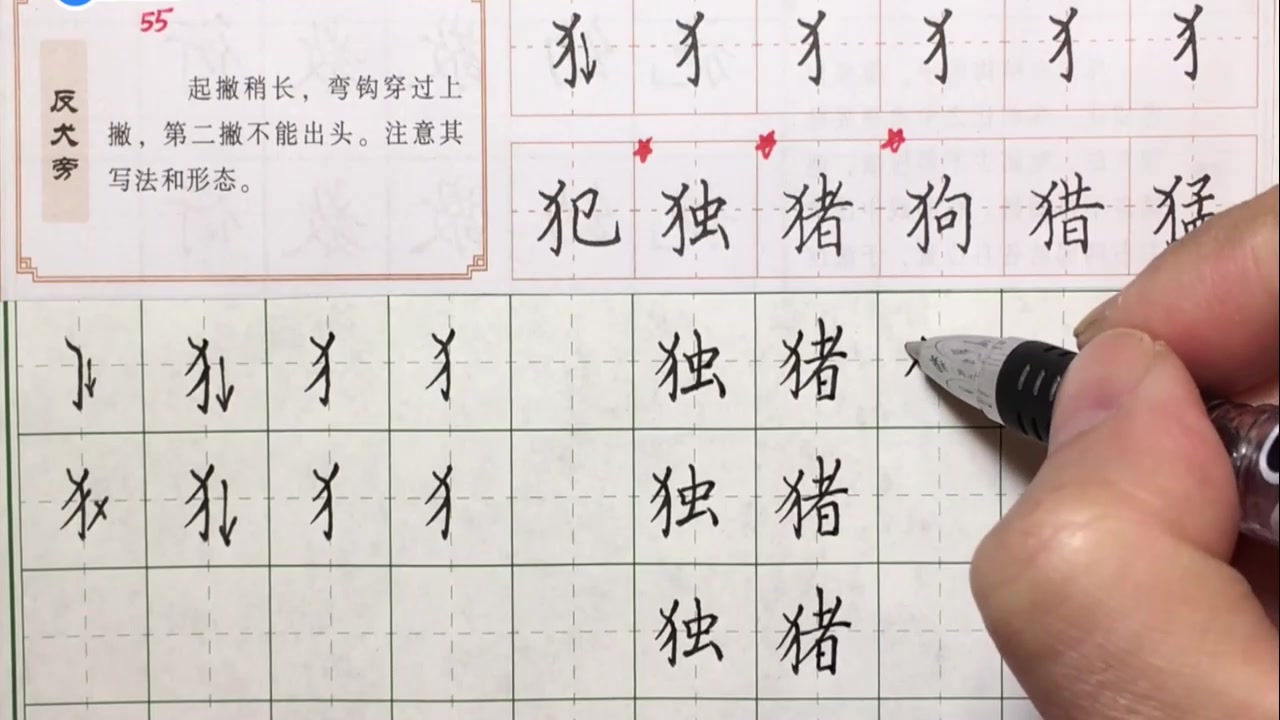 55
反犬旁
起撇稍长，弯钩穿过上
撇，第二撇不能出头。注意其
写法和形态。
犭 犭 犭 犭 犭 犭
犯 独 猪 狗 猎 猛
犭 犭 犭 独 猪
犭 犭 犭 犭 独 猪
独 猪